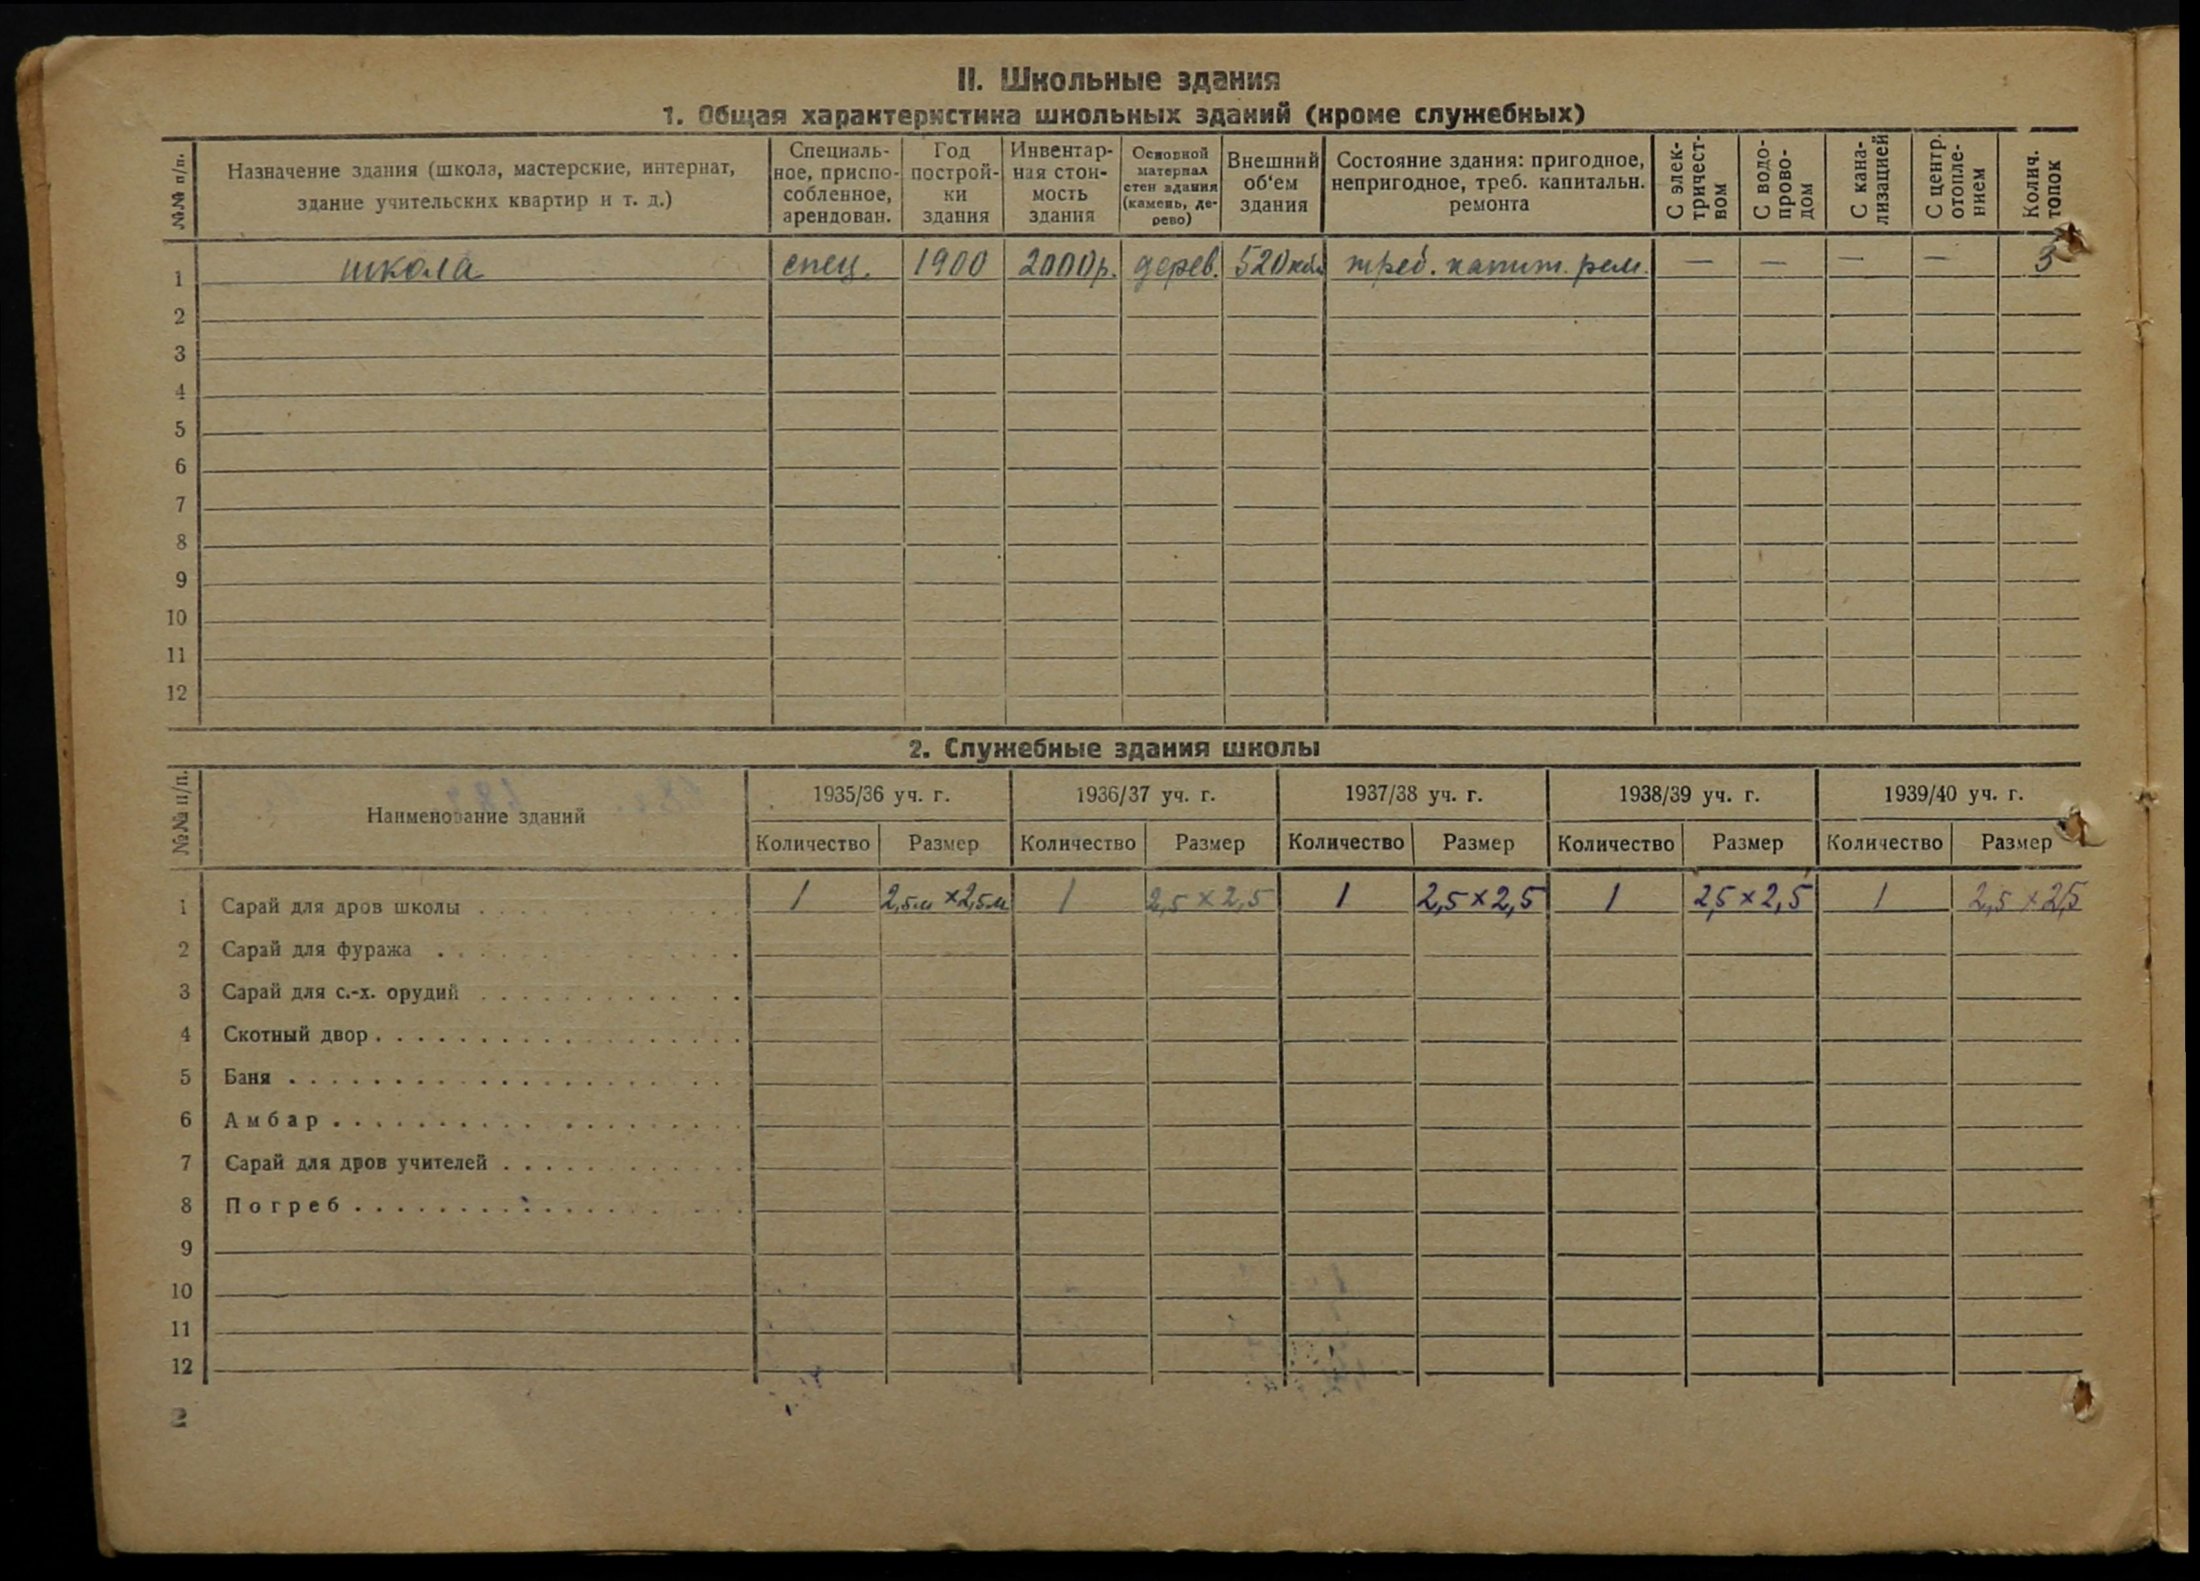 II. Школьные здания
1. Общая характеристика школьных зданий (кроме служебных)
№№ п/п. Назначение здания (школа, мастерские, интернат, здание учительских квартир и т. д.) Специаль-ное, приспо-собленное, арендован. Год построй-ки здания Инвентар-ная стои-мость здания Основной материал стен здания (камень, де-рево) Внешний об‘ем здания Состояние здания: пригодное, непригодное, треб. капитальн. ремонта С элек-тричест-вом С водо-прово-дом С кана-лизацией С центр. отопле-нием Колич. топок
1 школа спец. 1900 2000р. дерев. 520 треб. капит. рем. — — — — 3
2
3
4
5
6
7
8
9
10
11
12
2. Служебные здания школы
№№ п/п. Наименование зданий 1935/36 уч. г. 1936/37 уч. г. 1937/38 уч. г. 1938/39 уч. г. 1939/40 уч. г.
Количество Размер Количество Размер Количество Размер Количество Размер Количество Размер
1 Сарай для дров школы 1 2,5м × 2,5м 1 2,5 × 2,5 1 2,5 × 2,5 1 2,5 × 2,5 1 2,5 × 2,5
2 Сарай для фуража
3 Сарай для с.-х. орудий
4 Скотный двор
5 Баня
6 Амбар
7 Сарай для дров учителей
8 Погреб
9
10
11
12
2